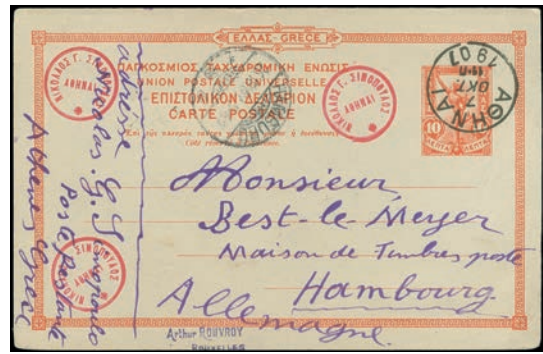 ΕΛΛΑΣ-GRECE
ΠΑΓΚΟΣΜΙΟΣ ΤΑΧΥΔΡΟΜΙΚΗ ΕΝΩΣΙΣ
UNION POSTALE UNIVERSELLE
ΕΠΙΣΤΟΛΙΚΟΝ ΔΕΛΤΑΡΙΟΝ
CARTE POSTALE
ΝΙΚΟΛΑΟΣ Γ. ΣΙΝΟΠΟΥΛΟΣ
ΑΘΗΝΑΙ
ΝΙΚΟΛΑΟΣ Γ. ΣΙΝΟΠΟΥΛΟΣ
ΑΘΗΝΑΙ
ΑΘΗΝΑΙ
7
ΟΚΤ
19 07
10
ΛΕΠΤΑ ΛΕΠΤΑ
Monsieur
Best-le Meyer
Maison de Timbres poste
Hambourg
Allemagne.
adresse
Nicolas. G. Sinopoulo
Poste Restante
Athènes Grèce
ΣΙΝΟΠΟΥΛΟΣ
Arthur ROUVROY
BRUXELLES